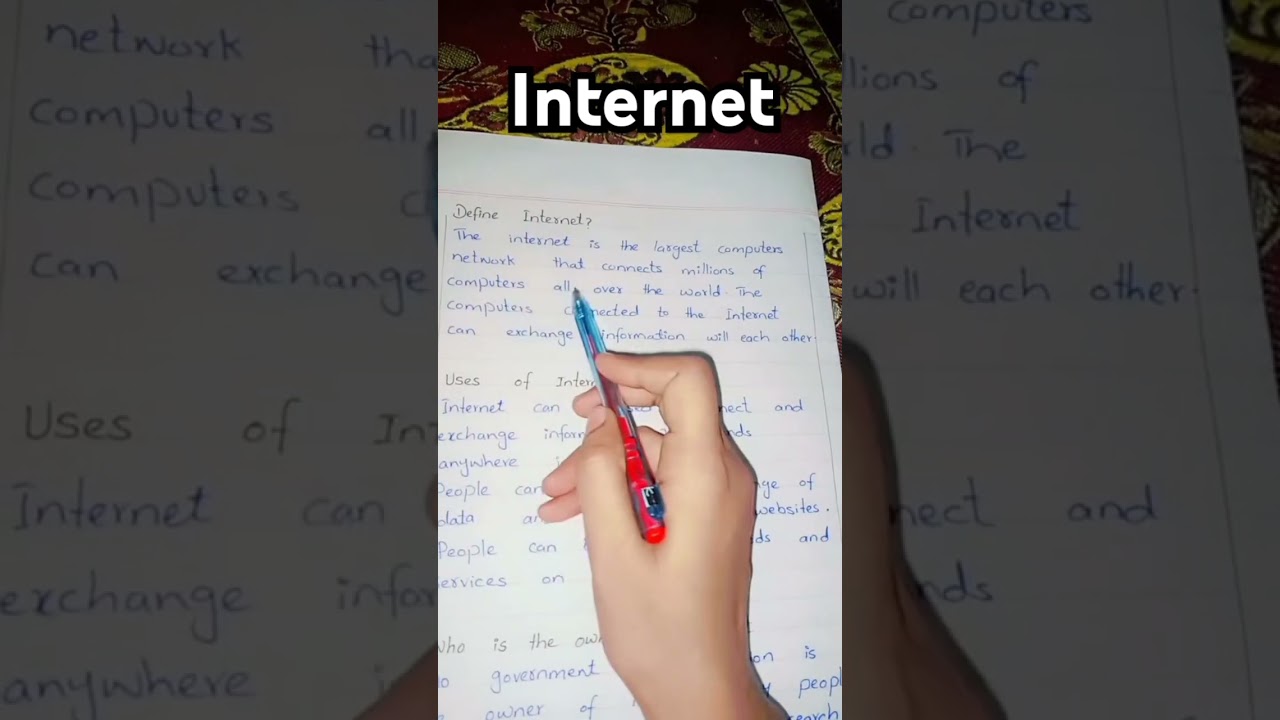 Internet
Define Internet?
The internet is the largest computers
network that connects millions of
computers all over the world. The
computers connected to the Internet
can exchange information will each other.
Uses of Inter
Internet can nect and
exchange infor nds
anywhere
People can ge of
data websites.
People can ds and
ervices on
who is the own
government on is
peopl
owner of
search